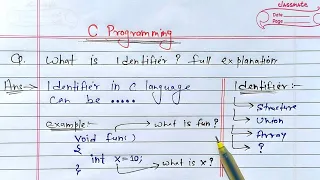 classmate
Date
Page
C Programming
Q. What is Identifier? full explanation
Ans → Identifier in C language
can be .....
example:-
void fun()
{
int x=10;
}
what is fun?
what is x?
Identifier:-
Structure
Union
Array
?